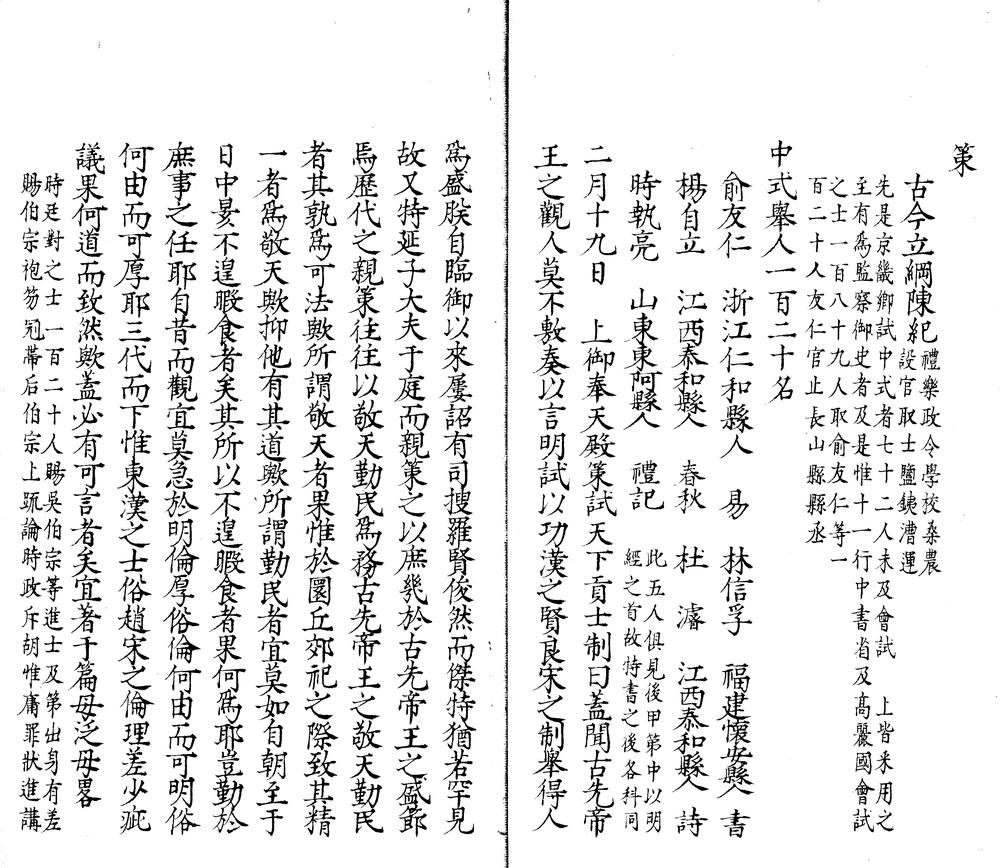 策
古今立綱陳紀 禮樂政令學校桑農
設官取士鹽鐵漕運
先是京畿鄉試中式者七十二人未及會試 上皆采用之
至有爲監察御史者及是惟十一行中書省及高麗國會試
之士一百八十九人取俞友仁等一
百二十人友仁官止長山縣縣丞
中式舉人一百二十名
俞友仁 浙江仁和縣人 易 林信孚 福建懷安縣人 書
楊自立 江西泰和縣人 春秋 杜濬 江西泰和縣人 詩
時執亮 山東東阿縣人 禮記 此五人俱見後甲第中以明
經之首故特書之後各科同
二月十九日 上御奉天殿策試天下貢士制曰蓋聞古先帝
王之觀人莫不敷奏以言明試以功漢之賢良宋之制舉得人
爲盛朕自臨御以來屢詔有司搜羅賢俊然而傑特猶若罕見
故又特延子大夫于庭而親策之以庶幾於古先帝王之盛節
焉歷代之親策往往以敬天勤民爲務古先帝王之敬天勤民
者其孰爲可法歟所謂敬天者果惟於圜丘郊祀之際致其精
一者爲敬天歟抑他有其道歟所謂勤民者宜莫如自朝至于
日中昃不遑暇食者矣其所以不遑暇食者果何爲耶豈勤於
庶事之任耶自昔而觀宜莫急於明倫厚俗倫何由而可明俗
何由而可厚耶三代而下惟東漢之士俗趙宋之倫理差少疵
議果何道而致然歟蓋必有可言者矣宜著于篇毋泛毋畧
時廷對之士一百二十人賜吳伯宗等進士及第出身有差
賜伯宗袍笏冠帶后伯宗上疏論時政斥胡惟庸罪狀進講